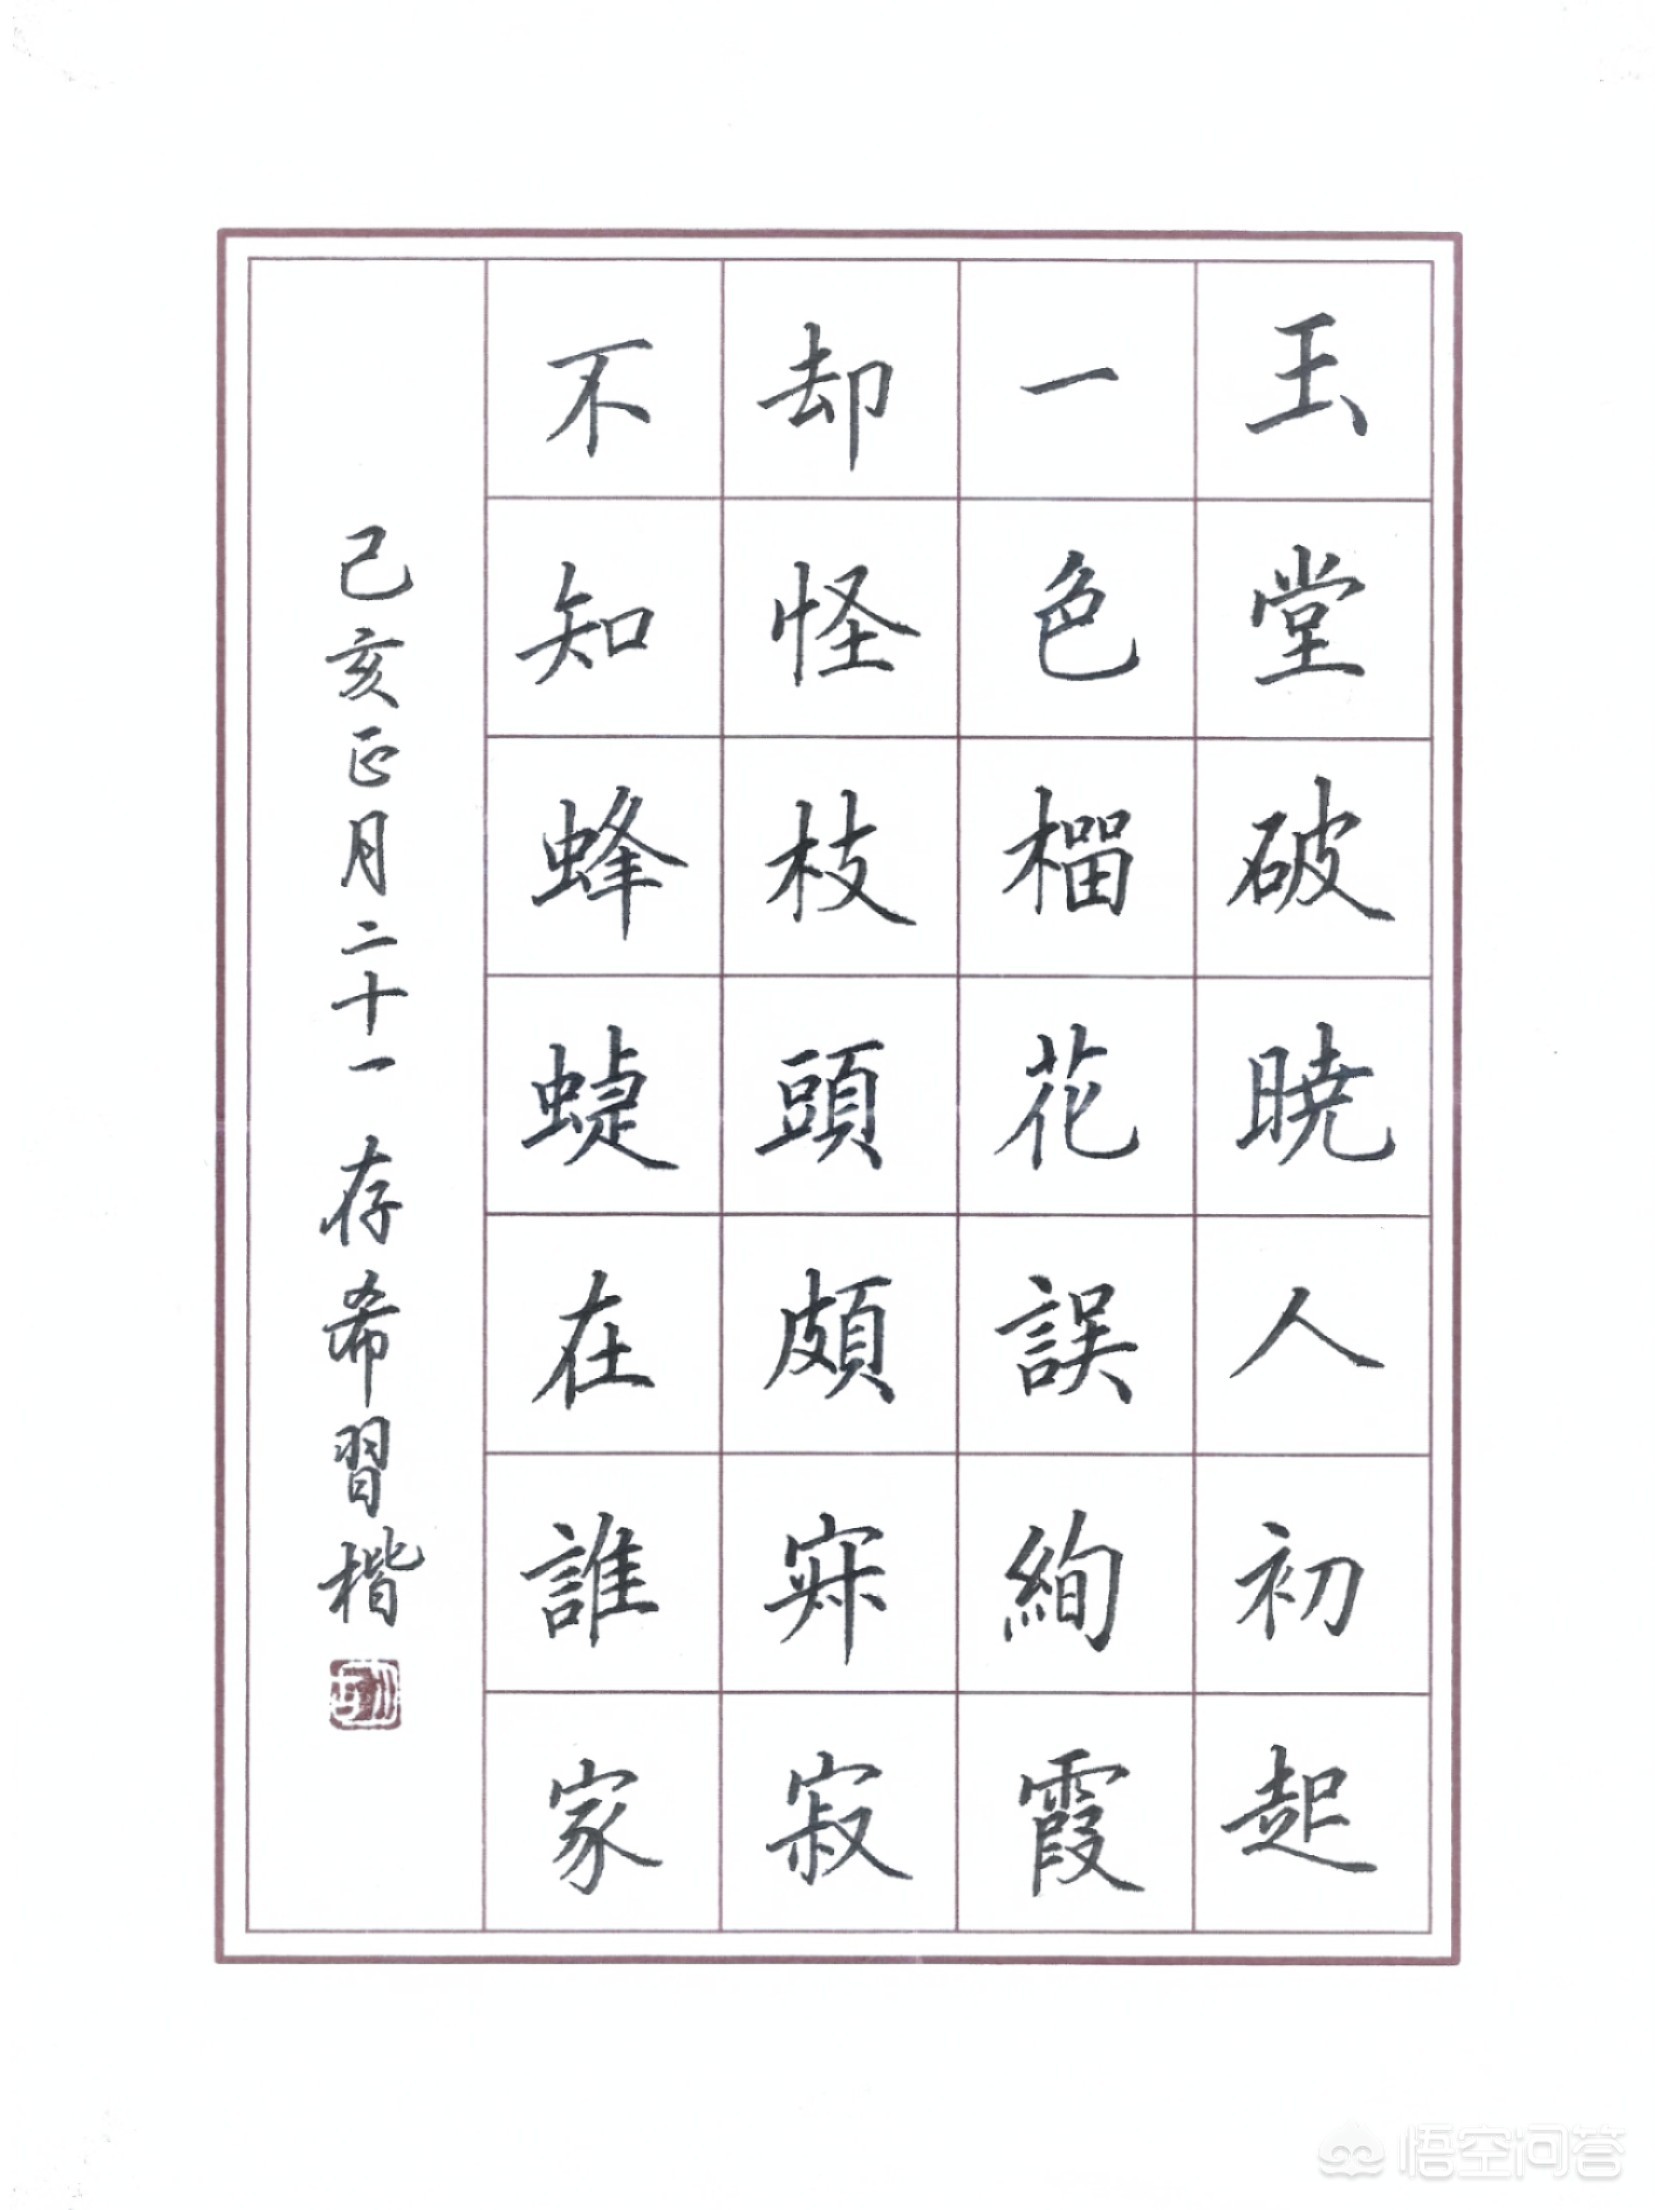 玉堂破曉人初起
一色榴花誤絢霞
却怪枝頭頗寂寂
不知蜂蜨在誰家
己亥正月二十一 存希習楷
悟空问答